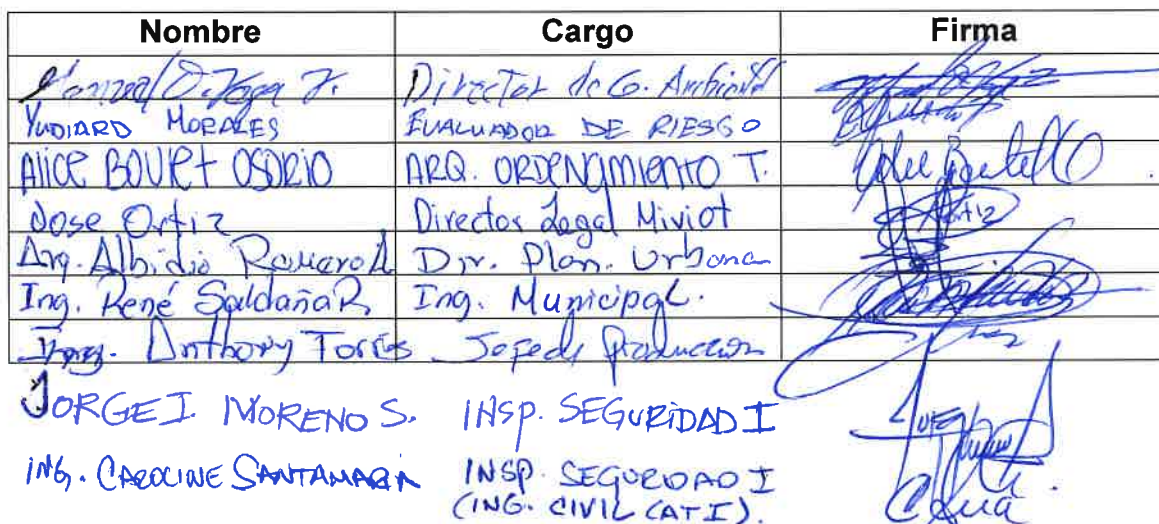 Nombre Cargo Firma
Manuel D. Vega V. Director de G. Ambiental
YUDIARD MORALES EVALUADOR DE RIESGO
Alice BOUtet OSORIO ARQ. ORDENAMIENTO T.
Jose Ortiz Director Legal Miviot Ortiz
Arq. Albidio Romero A Dir. Plan. Urbana
Ing. René Saldaña R. Ing. Municipal.
Ing. Anthony Torres Jefe de Produccion
JORGE I. MORENO S. INSP. SEGURIDAD I
ING. CAROLINE SANTAMARIA INSP. SEGURIDAD I
(ING. CIVIL CAT I).